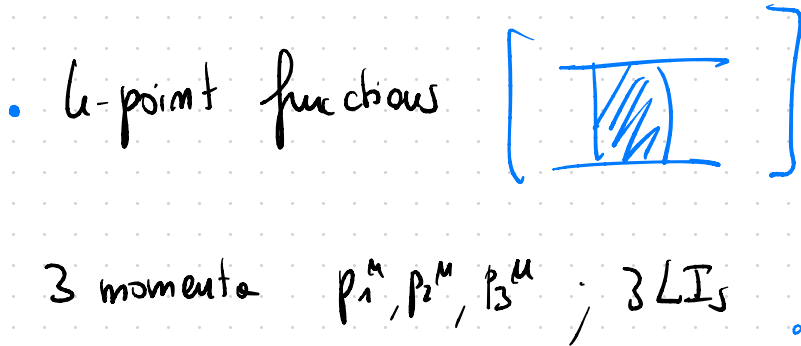 4-point functions
3 momenta p₁^μ, p₂^μ, p₃^μ ; 3 LIs